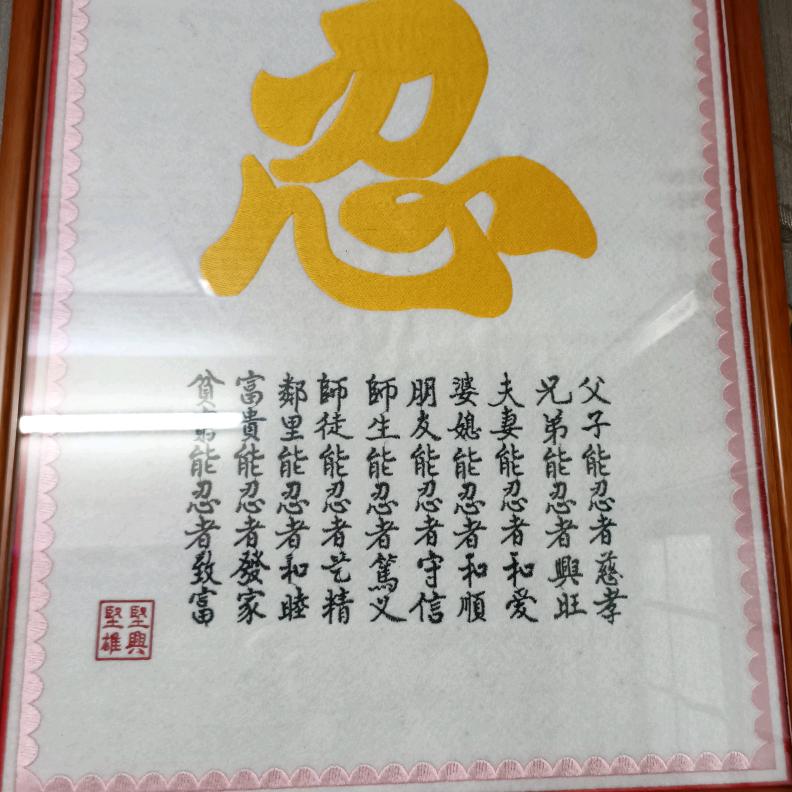 忍
父子能忍者慈孝
兄弟能忍者興旺
夫妻能忍者和爱
婆媳能忍者和順
朋友能忍者守信
師生能忍者篤义
師徒能忍者艺精
鄰里能忍者和睦
富貴能忍者發家
貧能忍者致富
堅興
堅雄